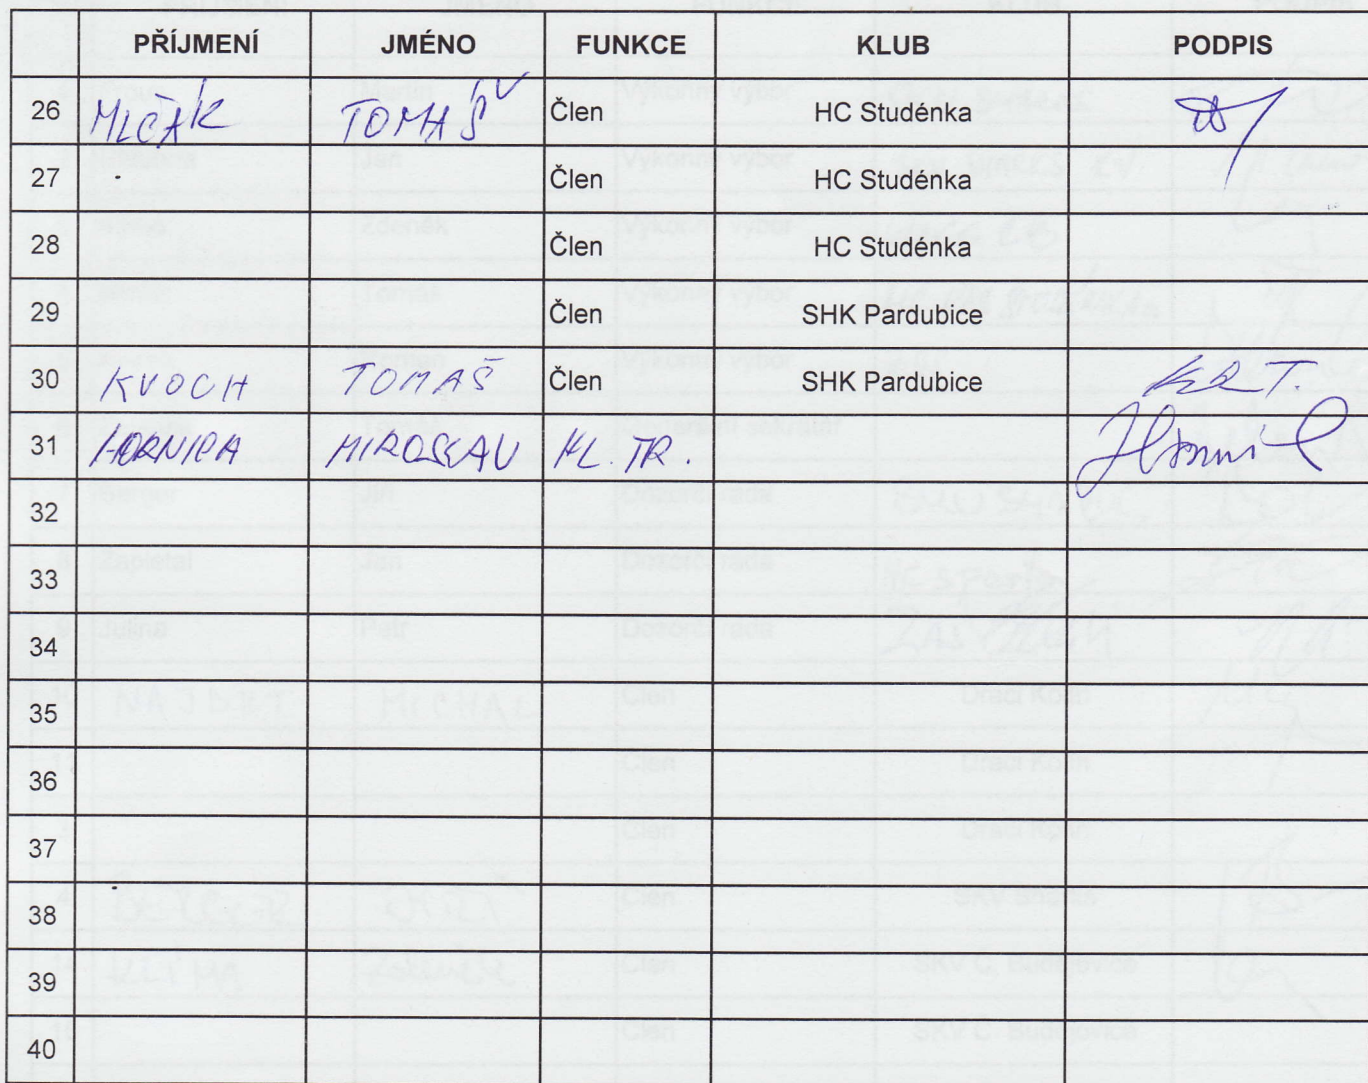 PŘÍJMENÍ JMÉNO FUNKCE KLUB PODPIS
26 MLČÁK TOMÁŠ Člen HC Studénka
27 Člen HC Studénka
28 Člen HC Studénka
29 Člen SHK Pardubice
30 KVOCH TOMAŠ Člen SHK Pardubice
31 MIROSLAV HL. TR.
32
33
34
35
36
37
38
39
40